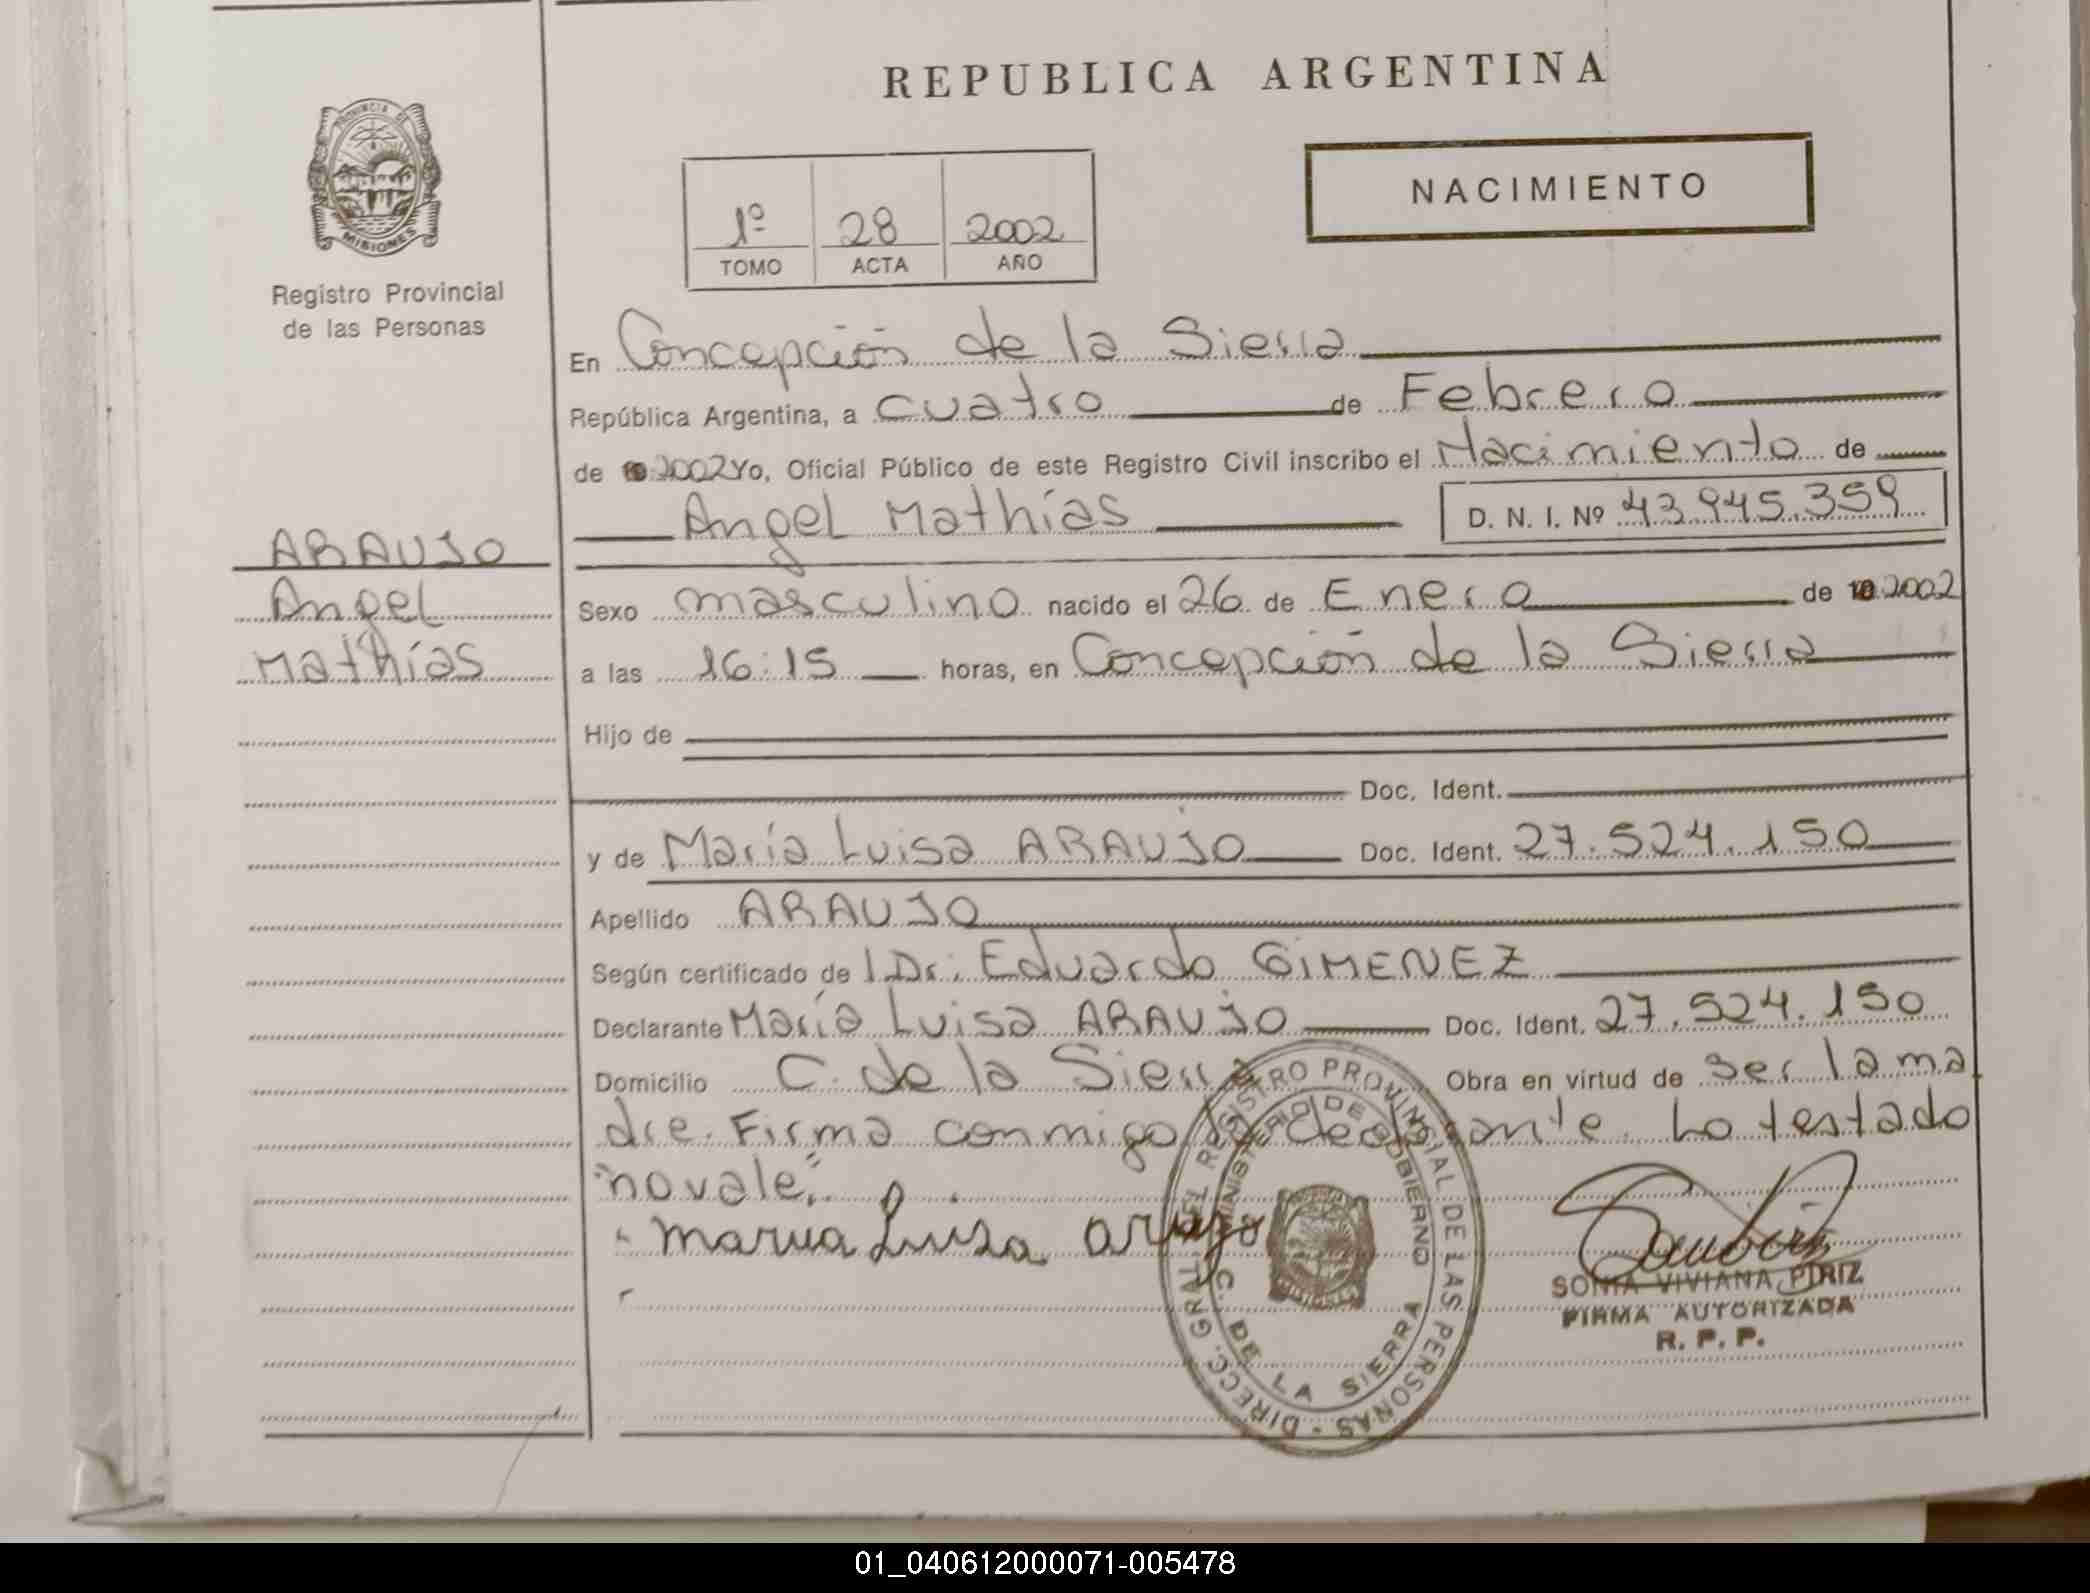 REPUBLICA ARGENTINA
PROVINCIA DE MISIONES
Registro Provincial
de las Personas
NACIMIENTO
1º 28 2002
TOMO ACTA AÑO
En Concepción de la Sierra
República Argentina, a cuatro de Febrero
de 2002 Yo, Oficial Público de este Registro Civil inscribo el Nacimiento de
Angel Mathías D. N. I. Nº 43.945.359
ARAUJO
Angel
Mathías
Sexo masculino nacido el 26 de Enero de 2002
a las 16:15 horas, en Concepción de la Sierra
Hijo de
Doc. Ident.
y de María Luisa ARAUJO Doc. Ident. 27.524.150
Apellido ARAUJO
Según certificado de l Dr. Eduardo GIMENEZ
Declarante María Luisa ARAUJO Doc. Ident. 27.524.150
Domicilio C. de la Sierra Obra en virtud de ser la ma
dre. Firma conmigo la declarante. Lo testado
"no vale."
Maria Luisa Araujo
DIRECC. GRAL. DEL REGISTRO PROVINCIAL DE LAS PERSONAS
MINISTERIO DE GOBIERNO
C. DE LA SIERRA
SONIA VIVIANA PIRIZ
FIRMA AUTORIZADA
R. P. P.
01_040612000071-005478